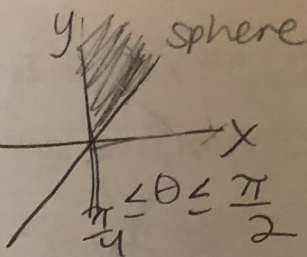 y sphere
x
π/4 ≤ θ ≤ π/2